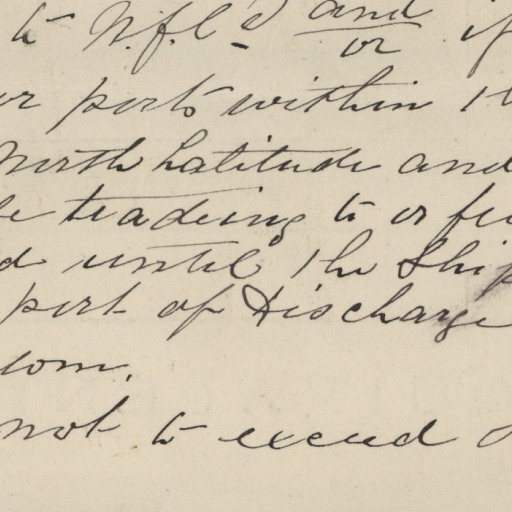 to N.f.l'd and/or if
or ports within
North Latitude and
trading to or
until the Ship
port of Discharge
not to exceed